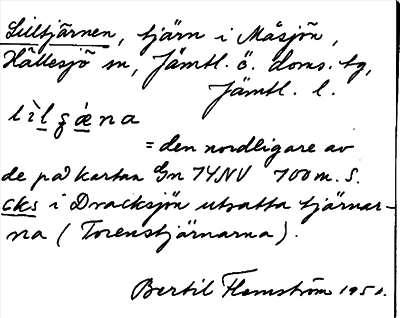 Lilltjärnen, tjärn i Måsjön,
Hällesjö sn, Jämtl. ö. doms. tg,
Jämtl. l.
lìlʂǽna
= den nordligare av
de på kartan Gn 74NV 700 m. S.
cks i Dracksjön utsatta tjärnar-
na (Torenstjärnarna).
Bertil Flemström 1951.